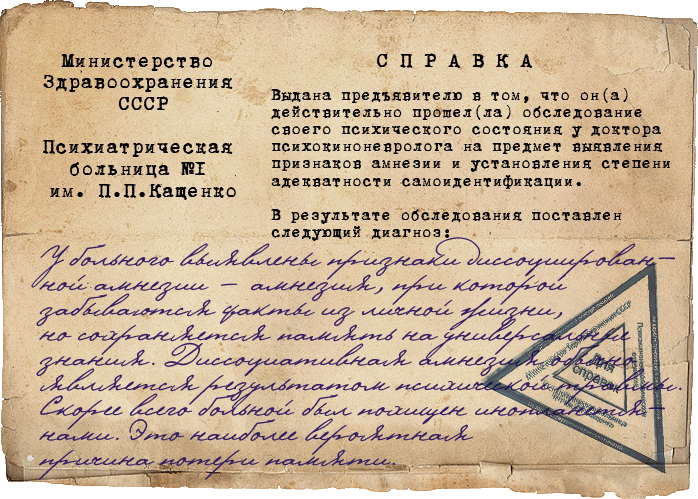 Министерство
Здравоохранения
СССР
Психиатрическая
больница №1
им. П.П.Кащенко
СПРАВКА
Выдана предъявителю в том, что он(а)
действительно прошел(ла) обследование
своего психического состояния у доктора
психокиноневролога на предмет выявления
признаков амнезии и установления степени
адекватности самоидентификации.
В результате обследования поставлен
следующий диагноз:
У больного выявлены признаки диссоциирован-
ной амнезии – амнезия, при которой
забываются факты из личной жизни,
но сохраняется память на универсальные
знания. Диссоциативная амнезия обычно
является результатом психической травмы.
Скорее всего больной был похищен инопланетя-
нами. Это наиболее вероятная
причина потери памяти.
ДЛЯ
СПРАВОК